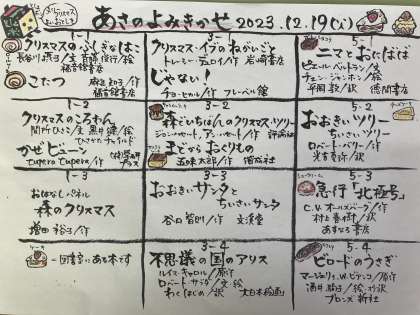 メリークリスマス
よいおとしを
あさのよみきかせ 2023.12.19(火)
1-1
クリスマスのふしぎなはこ
長谷川摂子/文 斉藤俊行/絵
福音館書店
こたつ
麻生知子/作
福音館書店
3-1
クリスマス・イブのねがいごと
トレーシー・デュロイ/作 岩崎書店
じゃない!
チョーヒカル/作 フレーベル館
5-1
ニマとおにばば
ピエール・ベルトラン/文
チェン・ジャンホン/絵
平岡敦/訳 徳間書店
1-2
クリスマスのころわん
間所ひさこ/文 黒井健/絵
ひさかたチャイルド
かぜビューン
tupera tupera/作
Gakken
3-2
森いちばんのクリスマス・ツリー
ジョン・ハセット、アン・ハセット/作 評論社
まどからおくりもの
五味太郎/作 偕成社
5-2
おおきいツリー
ちいさいツリー
ロバート・バリー/作
光吉夏弥/訳
1-3
おはなしパネル
森のクリスマス
増田裕子/作
3-3
おおきいサンタと
ちいさいサンタ
谷口智則/作 文溪堂
5-3
急行「北極号」
C.V.オールズバーグ/作
村上春樹/訳
あすなろ書房
ケーキ
―図書室にある本です
3-4
不思議の国のアリス
ルイス・キャロル/原作
ロバート・サブダ/文・絵
わくはじめ/訳 大日本絵画
5-4
ビロードのうさぎ
マージェリィ・W.ビアンコ/原作
酒井駒子/絵・抄訳
ブロンズ新社